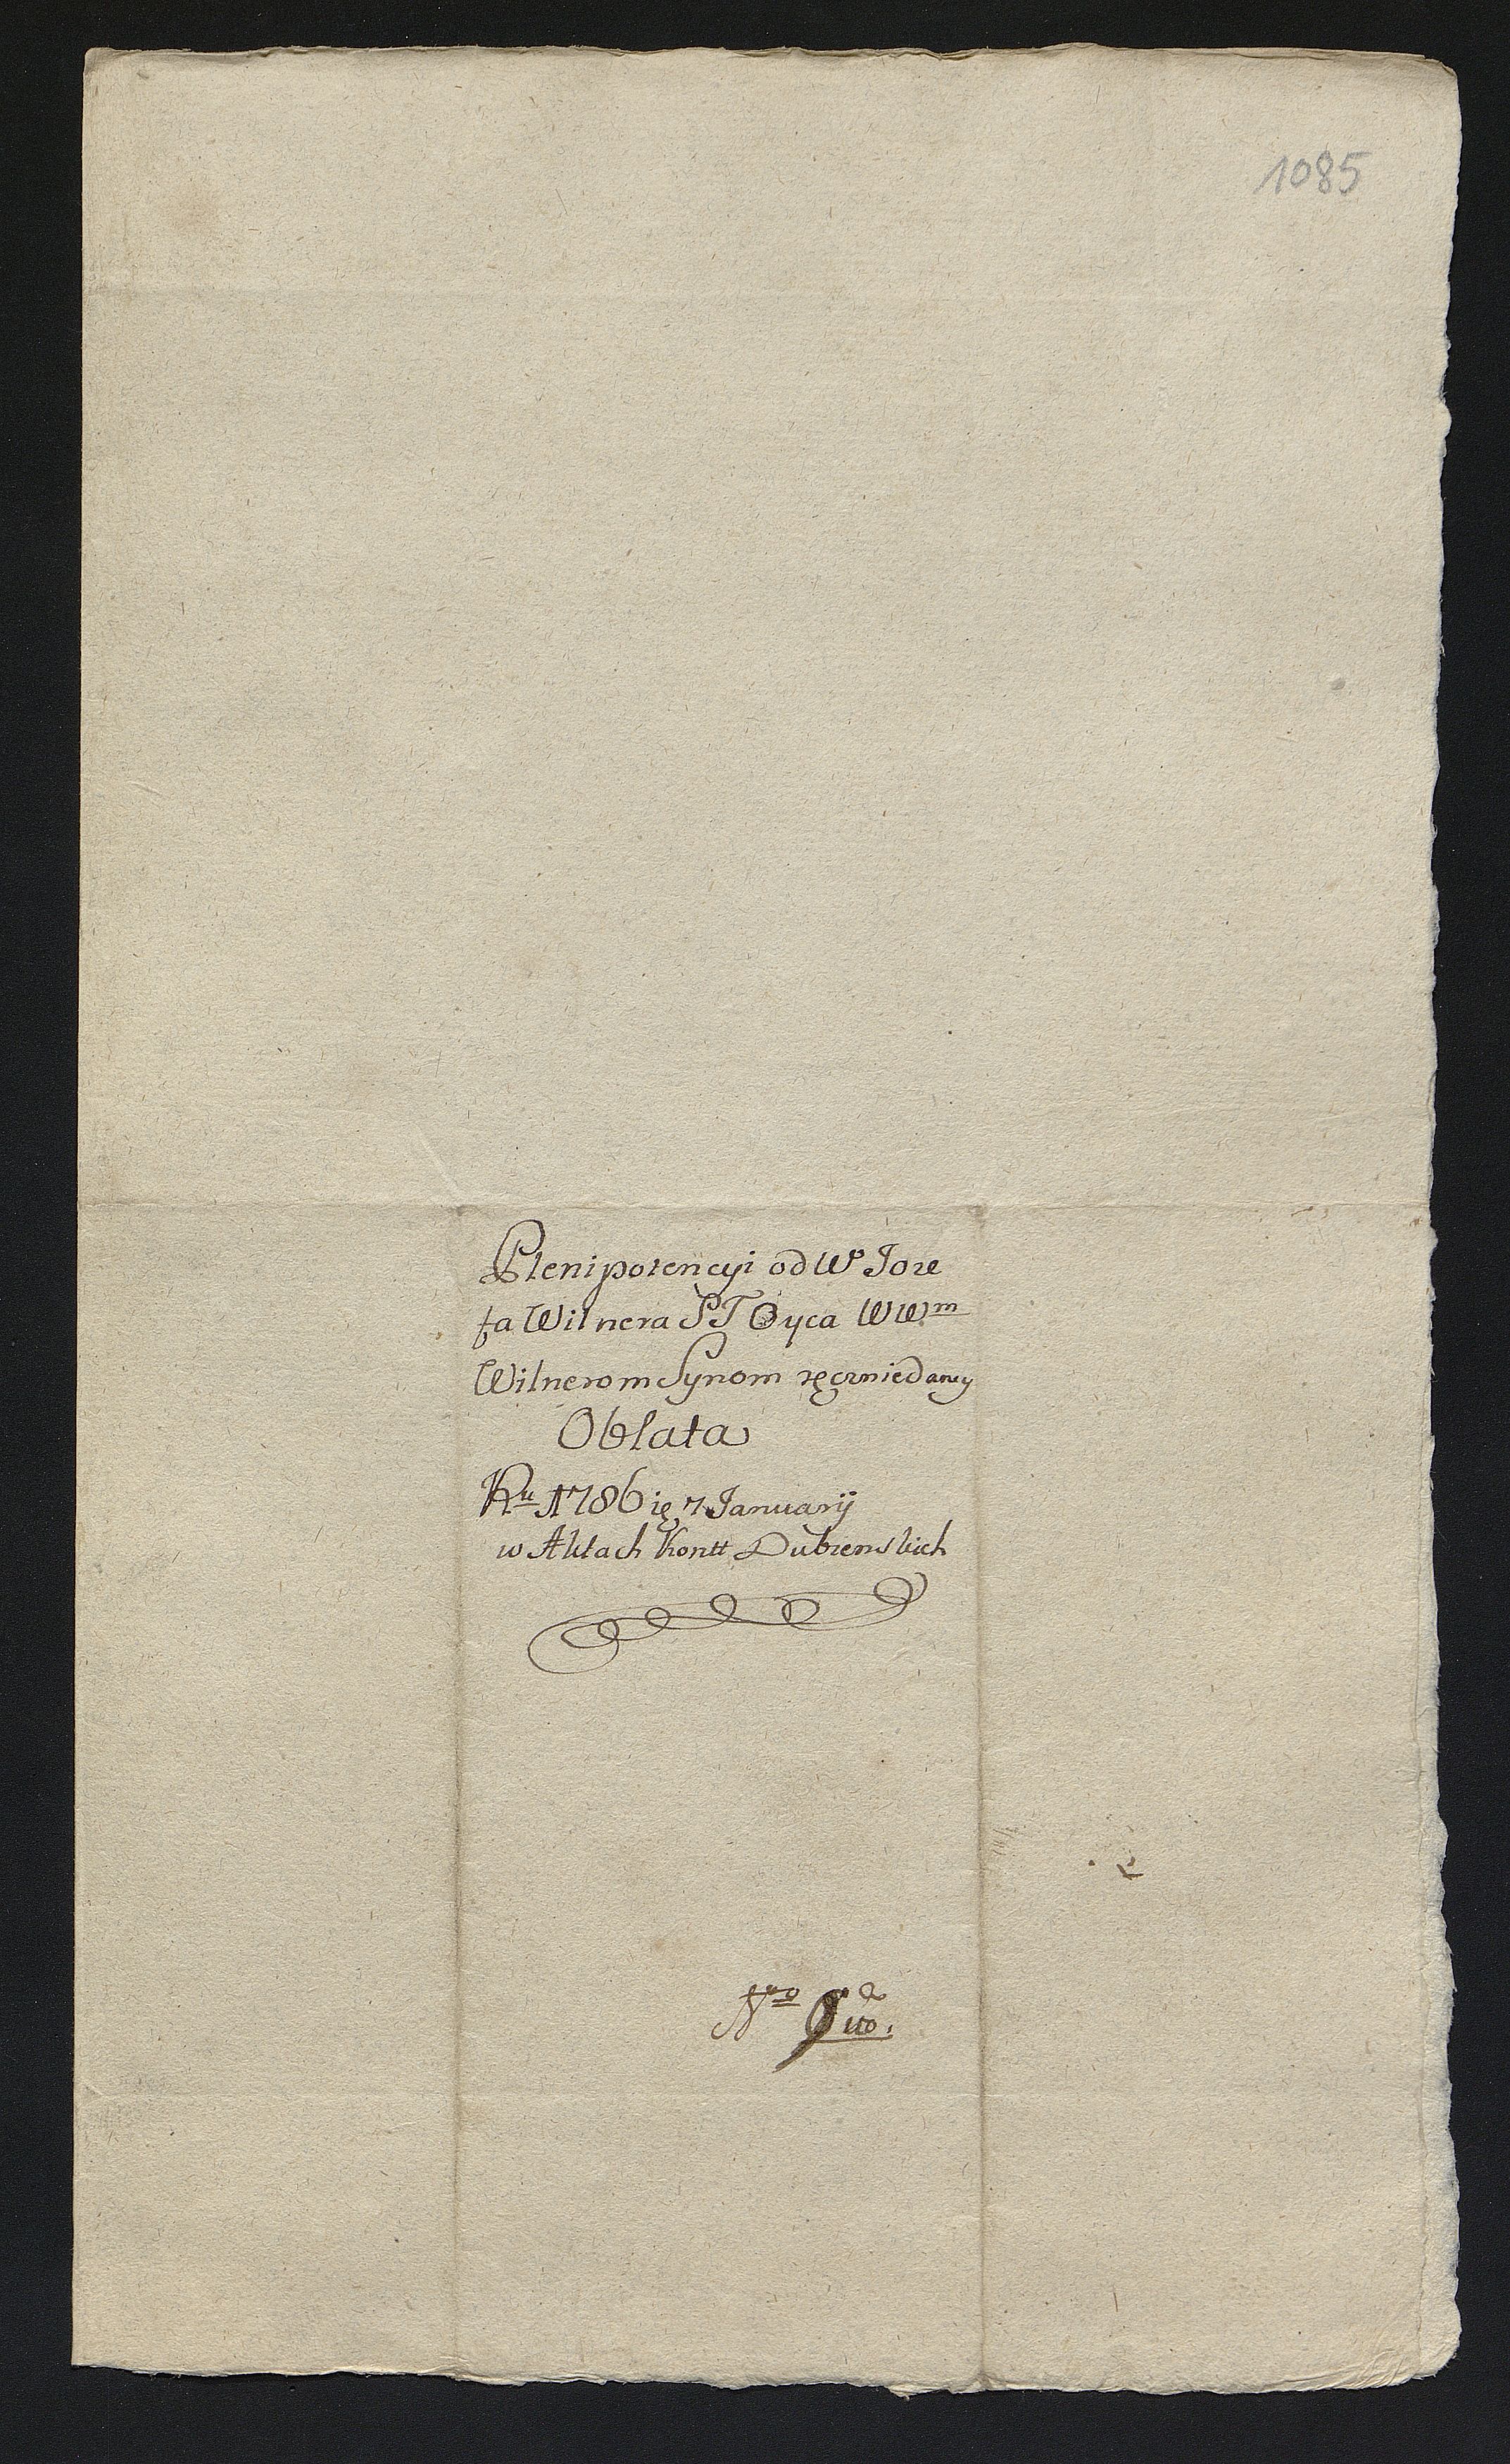 1085
Plenipotencyi od WP Joze
fa Wilnera ST Oyca WWm
Wilnerom Synom ręcznie daney
Oblata
Ru 1786 ię 7 Januarij
w Aktach Kontt Dubienskich
No